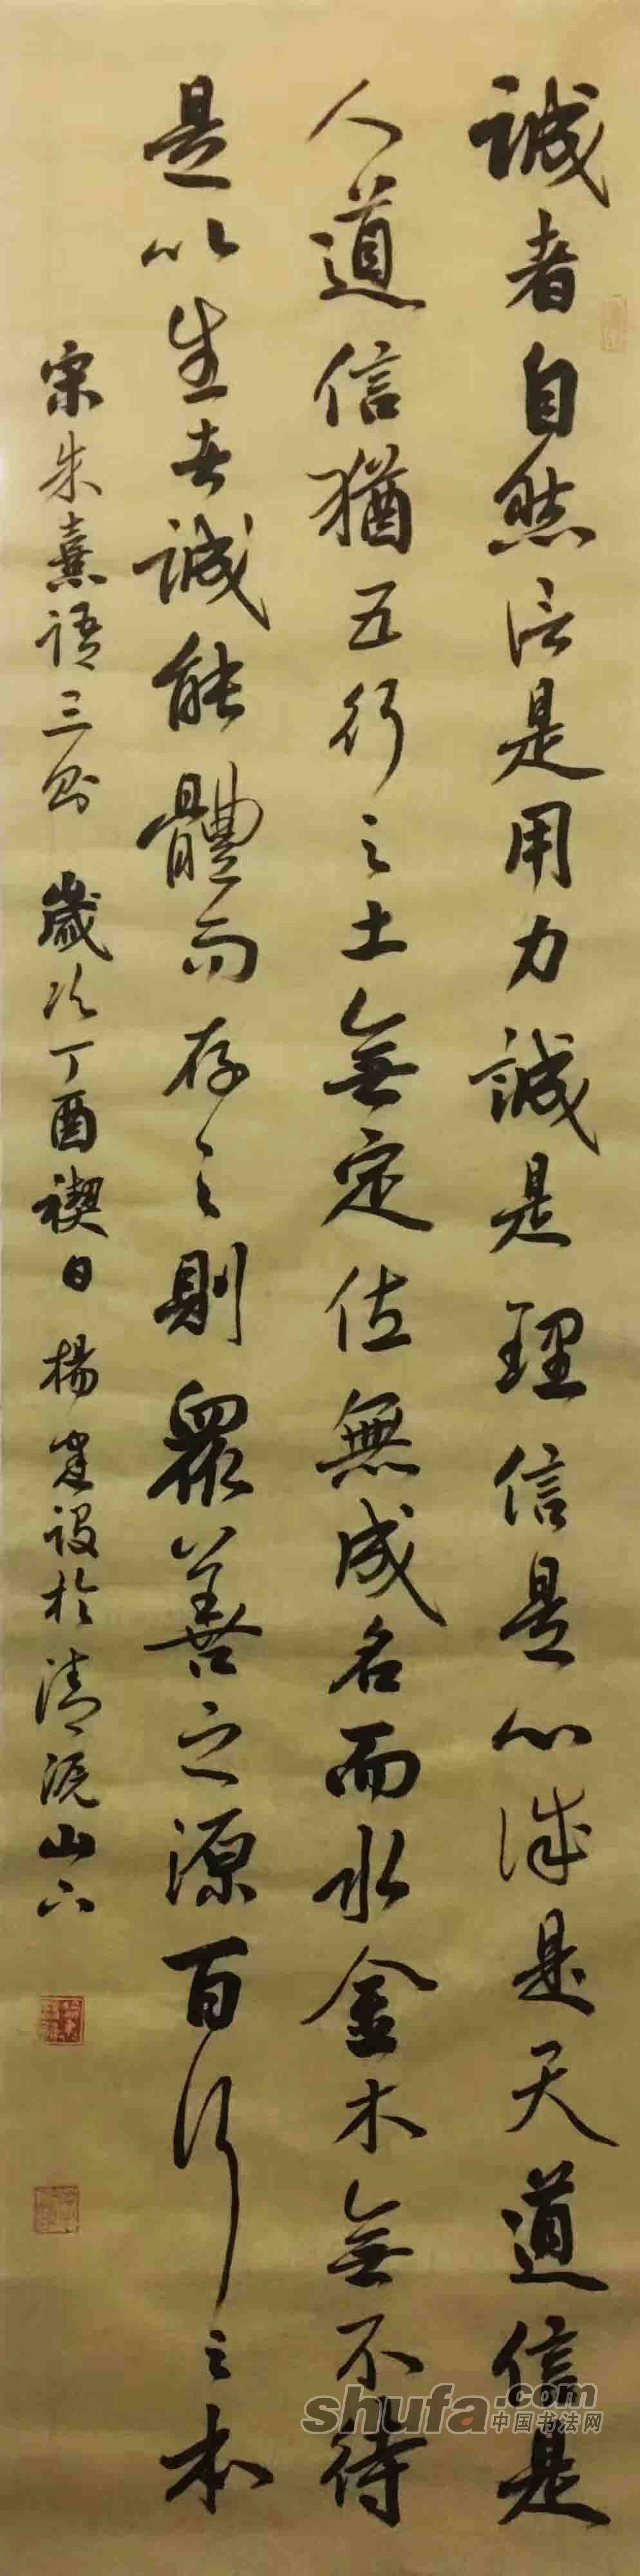 誠者自然信是用力誠是理信是心誠是天道信是
人道信猶五行之土無定位無成名而水金木無不待
是以生者誠能體而存之則眾善之源百行之本
宋朱熹語三則 歲次丁酉禊日 楊建設於清涼山下
shufa.com
中国书法网